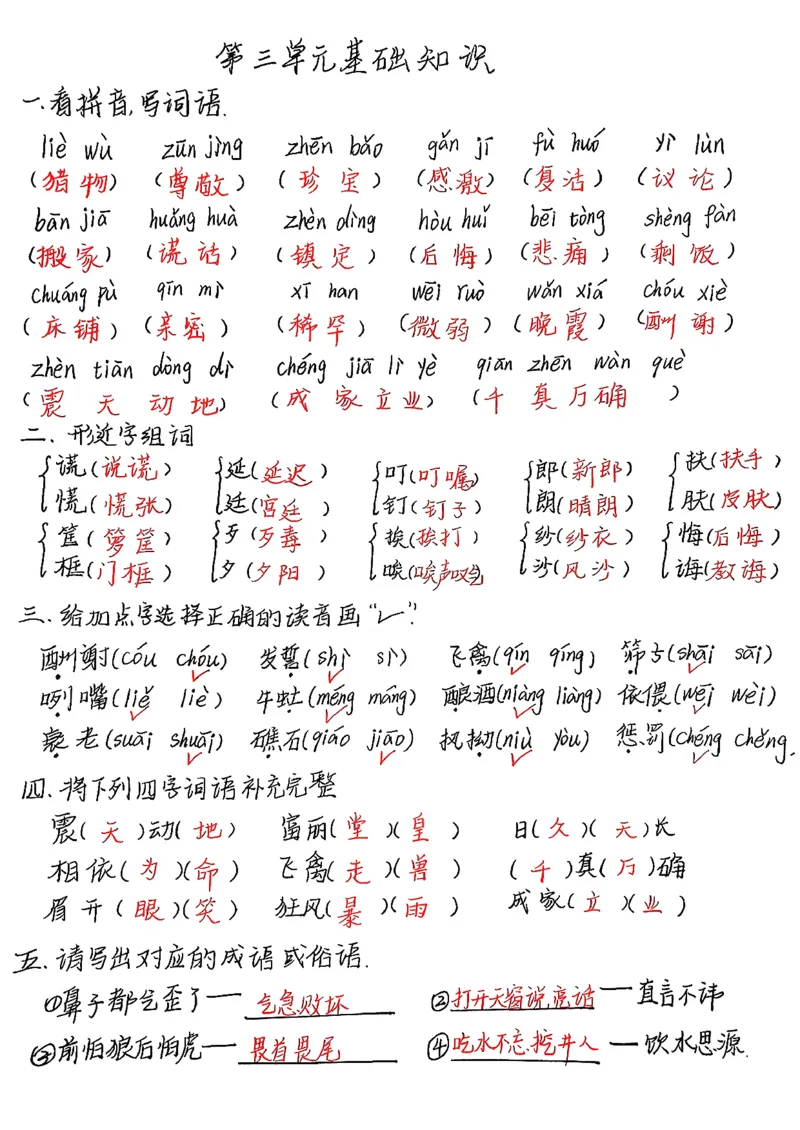 第三单元基础知识
一.看拼音,写词语.
liè wù zūn jìng zhēn bǎo gǎn jī fù huó yì lùn
(猎物) (尊敬) (珍宝) (感激) (复活) (议论)
bān jiā huǎng huà zhèn dìng hòu huǐ bēi tòng shèng fàn
(搬家) (谎话) (镇定) (后悔) (悲痛) (剩饭)
chuáng pù qīn mì xī han wēi ruò wǎn xiá chóu xiè
(床铺) (亲密) (稀罕) (微弱) (晚霞) (酬谢)
zhèn tiān dòng dì chéng jiā lì yè qiān zhēn wàn què
(震天动地) (成家立业) (千真万确)
二.形近字组词
谎(说谎) 延(延迟) 叮(叮嘱) 郎(新郎) 扶(扶手)
慌(慌张) 廷(宫廷) 钉(钉子) 朗(晴朗) 肤(皮肤)
筐(箩筐) 歹(歹毒) 挨(挨打) 纱(纱衣) 悔(后悔)
框(门框) 夕(夕阳) 唉(唉声叹气) 沙(风沙) 诲(教诲)
三.给加点字选择正确的读音画“✓”.
酬谢(cóu chóu) 发誓(shì sì) 飞禽(qín qíng) 筛子(shāi sāi)
咧嘴(liě liè) 牛虻(méng máng) 酿酒(niàng liàng) 依偎(wēi wèi)
衰老(suāi shuāi) 礁石(qiáo jiāo) 执拗(niù yòu) 惩罚(chéng chěng)
四.将下列四字词语补充完整
震(天)动(地) 富丽(堂)(皇) 日(久)(天)长
相依(为)(命) 飞禽(走)(兽) (千)真(万)确
眉开(眼)(笑) 狂风(暴)(雨) 成家(立)(业)
五.请写出对应的成语或俗语.
①鼻子都气歪了——气急败坏 ②打开天窗说亮话——直言不讳
③前怕狼后怕虎——畏首畏尾 ④吃水不忘挖井人——饮水思源.